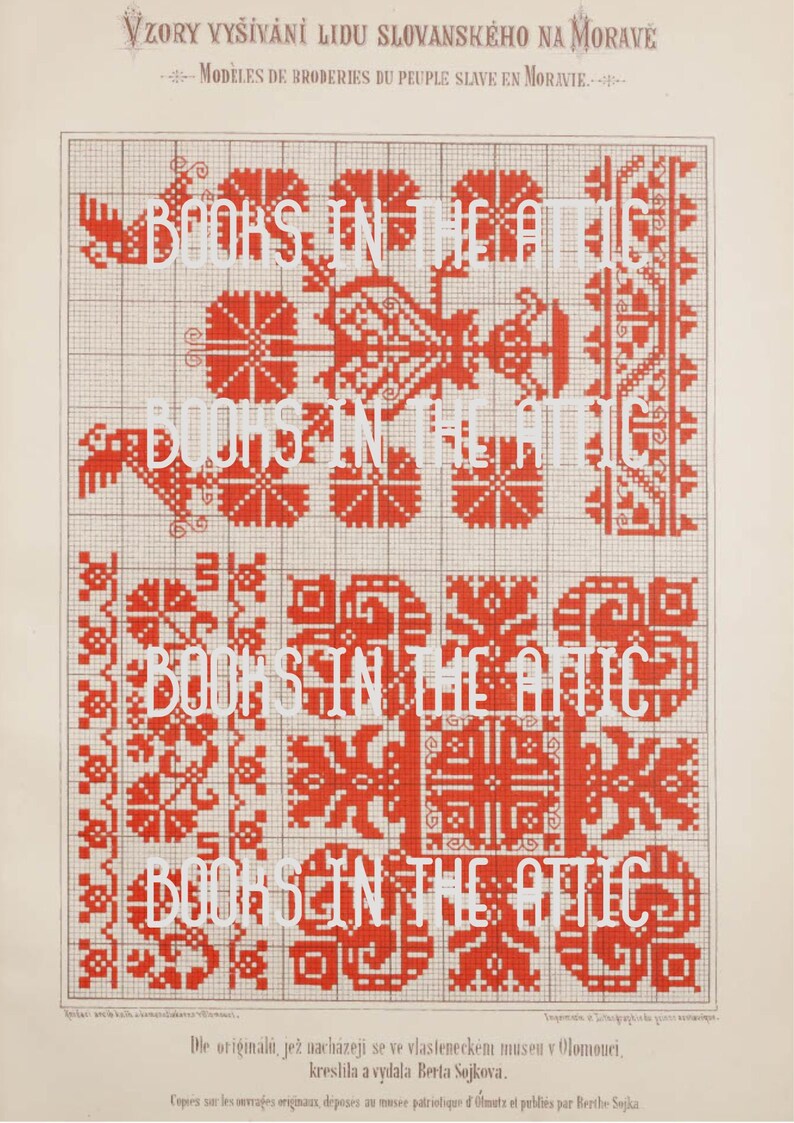 VZORY VYŠÍVÁNÍ LIDU SLOVANSKÉHO NA MORAVĚ
MODÈLES DE BRODERIES DU PEUPLE SLAVE EN MORAVIE.
BOOKS IN THE ATTIC
BOOKS IN THE ATTIC
BOOKS IN THE ATTIC
BOOKS IN THE ATTIC
Dle originálů, jež nacházejí se ve vlasteneckém museu v Olomouci,
kreslila a vydala Berta Sojková.
Copiés sur les ouvrages originaux, déposés au musée patriotique d'Olmutz et publiés par Berthe Sojka.